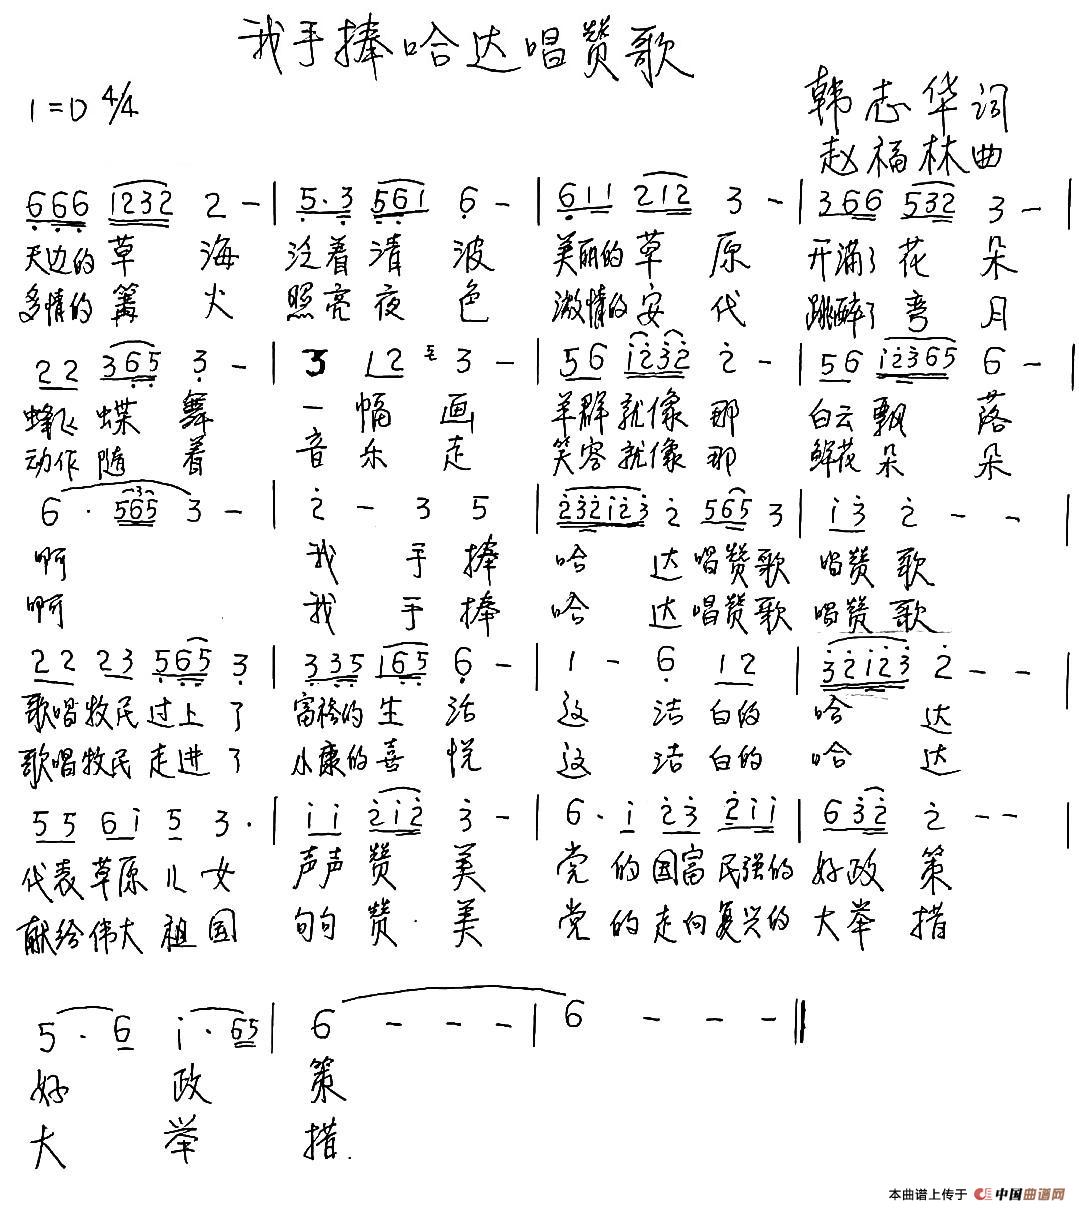 我手捧哈达唱赞歌
1=D 4/4
韩志华词
赵福林曲
666 1232 2 - | 5.3 561 6 - | 611 212 3 - | 366 532 3 - |
天边的草 海 泛着清 波 美丽的草 原 开满了花 朵
多情的篝 火 照亮夜 色 激情的安 代 跳醉了弯 月
22 365 3 - | 3 12 3 - | 56 1232 2 - | 56 12365 6 - |
蜂飞蝶 舞 一 幅 画 羊群就像 那 白云飘 落
动作随 着 音 乐 走 笑容就像 那 鲜花朵 朵
6 · 565 3 - | 2 - 3 5 | 232123 2 565 3 | 13 2 - - |
啊 我 手 捧 哈 达唱赞歌 唱赞 歌
啊 我 手 捧 哈 达唱赞歌 唱赞 歌
22 23 565 3 | 335 165 6 - | 1 - 6 12 | 32123 2 - - |
歌唱牧民过上了 富裕的生 活 这 洁白的 哈 达
歌唱牧民走进了 小康的喜 悦 这 洁白的 哈 达
55 61 5 3 · | 11 212 3 - | 6 · 1 23 211 | 632 2 - - |
代表草原儿女 声声赞 美 党 的国富民强的 好政 策
献给伟大祖国 句句赞 · 美 党 的走向复兴的 大举 措
5 · 6 1 · 65 | 6 - - - | 6 - - - ‖
好 政 策
大 举 措.
本曲谱上传于 中国曲谱网